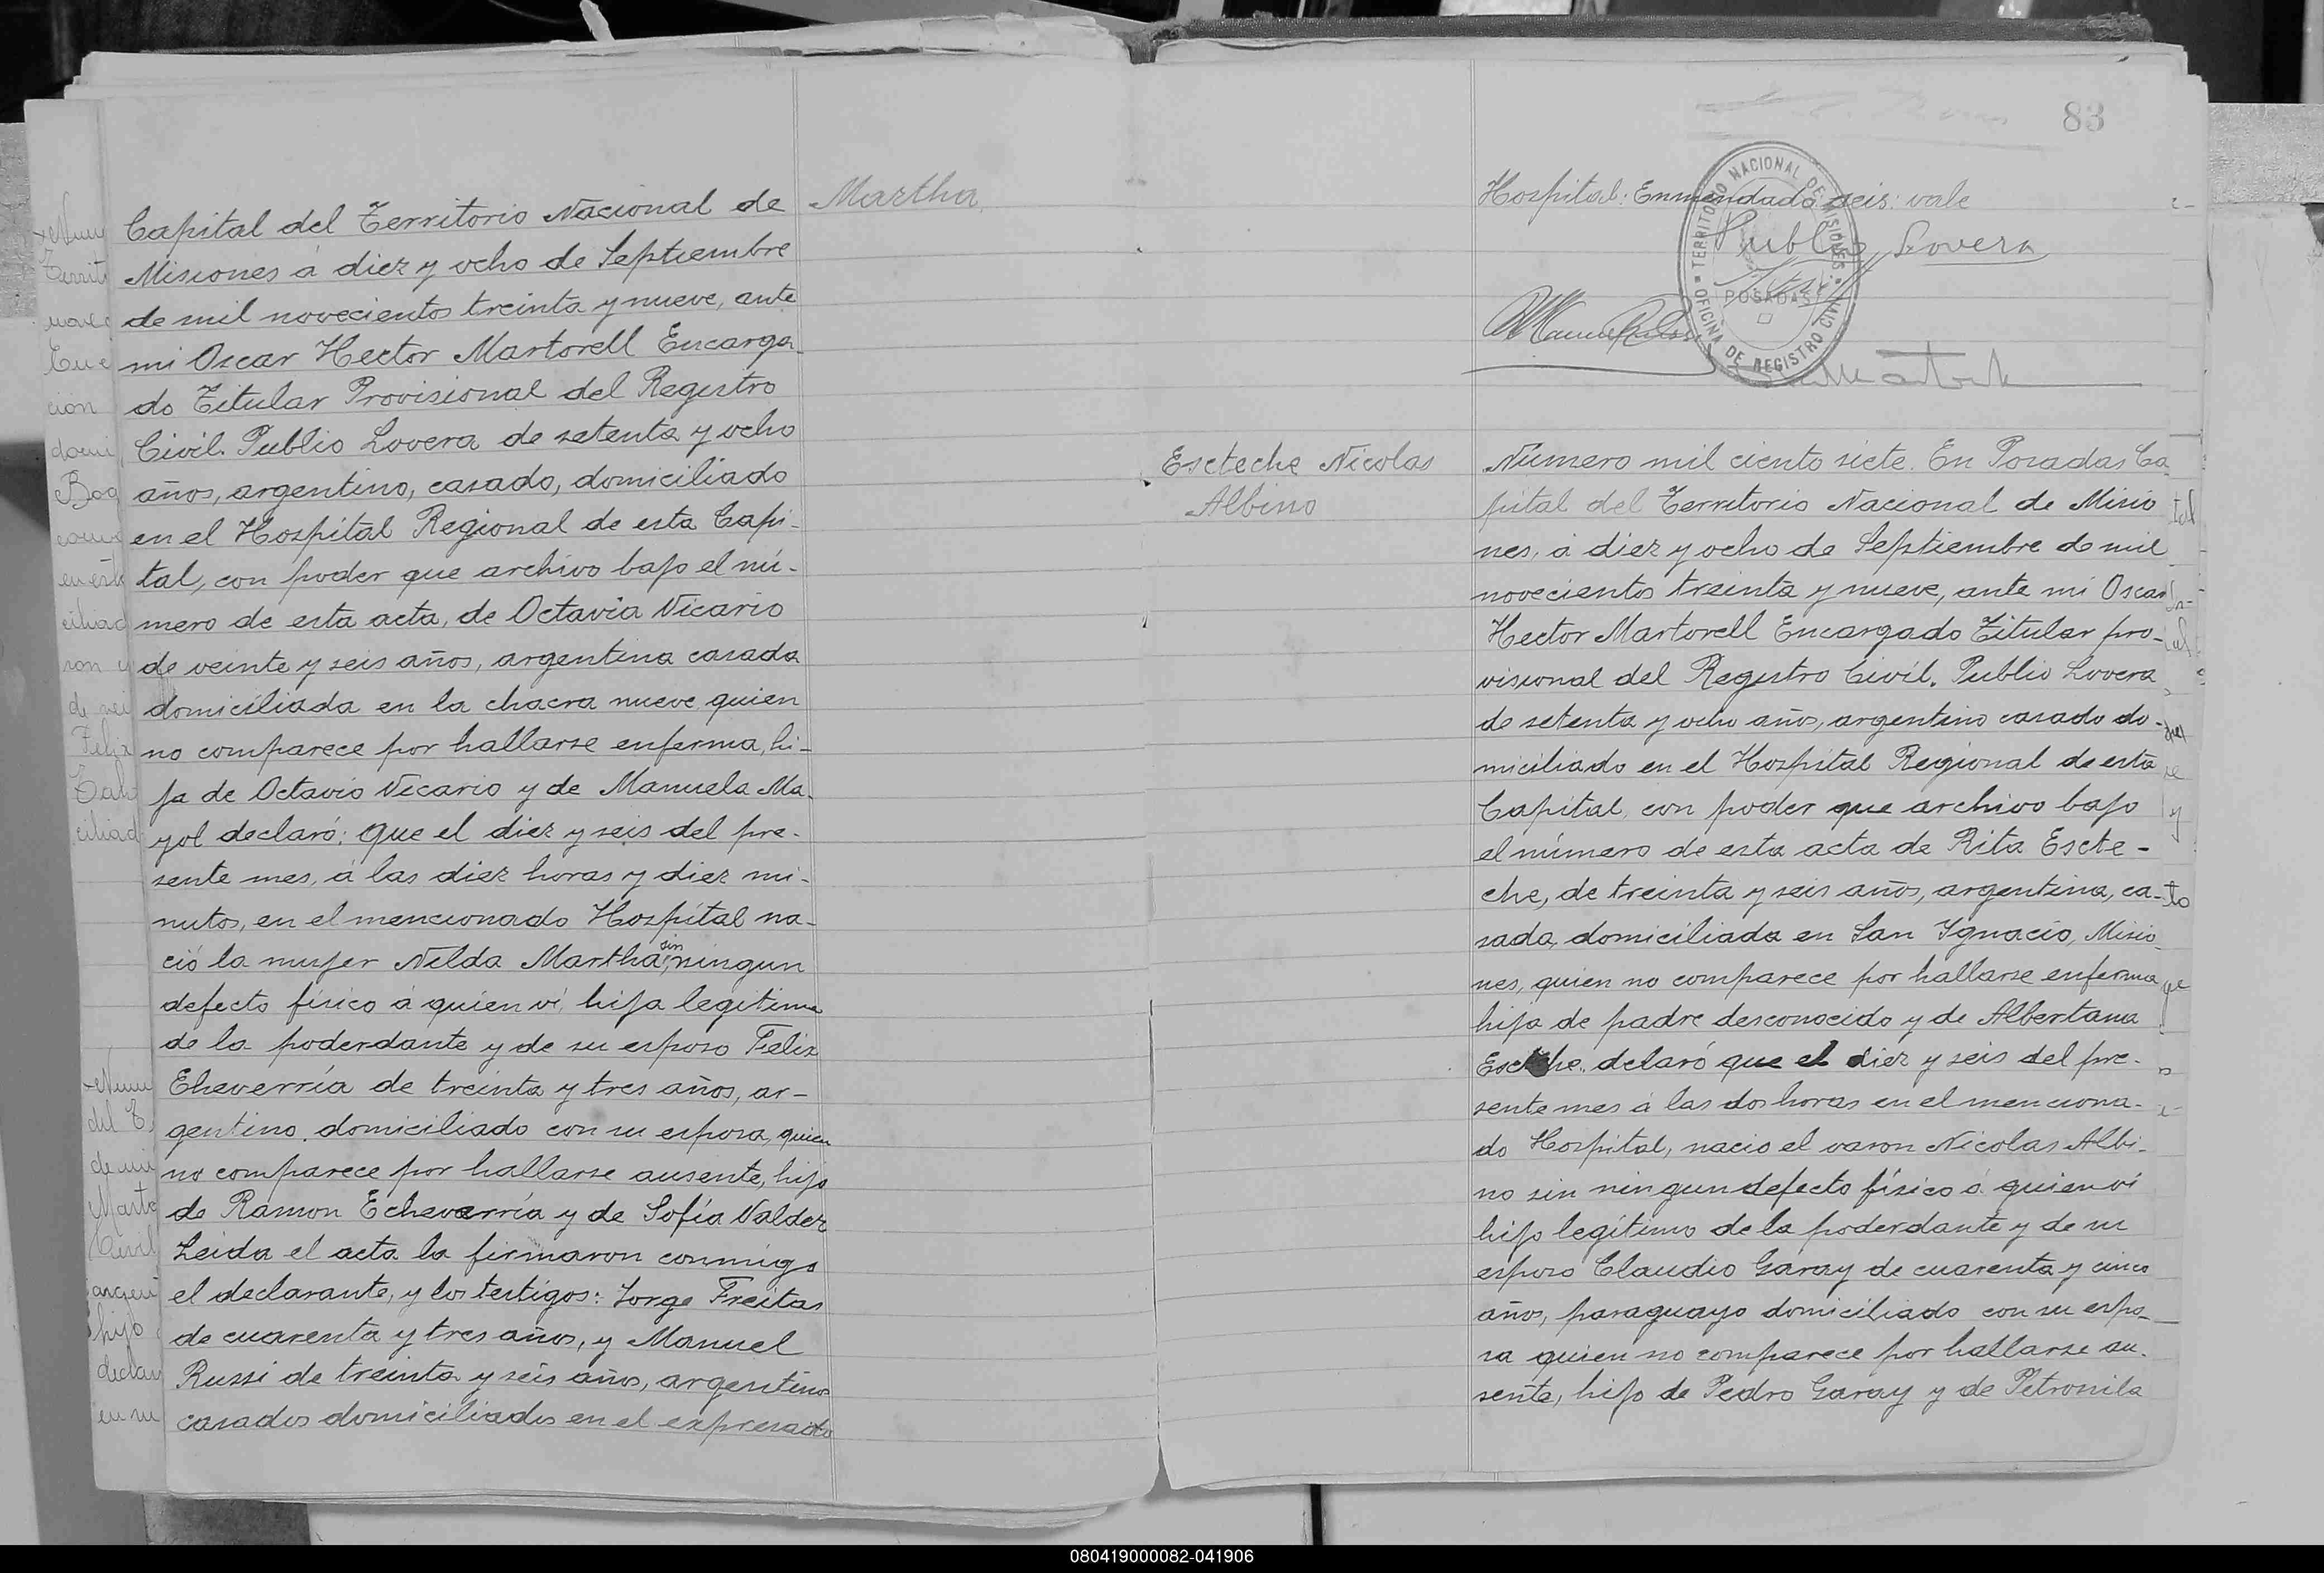 Capital del Territorio Nacional de
Misiones á diez y ocho de Septiembre
de mil novecientos treinta y nueve, ante
mi Oscar Hector Martorell Encarga-
do Titular Provisional del Registro
Civil. Publio Lovera de setenta y ocho
años, argentino, casado, domiciliado
en el Hospital Regional de esta Capi-
tal, con poder que archivo bajo el nú-
mero de esta acta, de Octavia Vicario
de veinte y seis años, argentina casada
domiciliada en la chacra nueve, quien
no comparece por hallarse enferma, hi-
ja de Octavio Vicario y de Manuela Ma-
yol declaró: que el diez y seis del pre-
sente mes, á las diez horas y diez mi-
nutos, en el mencionado Hospital na-
ció la mujer Nelda Martha, sin ningun
defecto físico á quien ví, hija legitima
de la poderdante y de su esposo Felix
Eheverría de treinta y tres años, ar-
gentino, domiciliado con su esposa, quien
no comparece por hallarse ausente, hijo
de Ramon Echeverría y de Sofía Valdez
Leida el acta la firmaron conmigo
el declarante, y los testigos: Jorge Freitas
de cuarenta y tres años, y Manuel
Russi de treinta y seis años, argentinos
casados domiciliados en el expresado
Martha
83
Hospital: Enmendado seis: vale
Publio Lovera
TERRITORIO NACIONAL DE MISIONES
POSADAS
OFICINA DE REGISTRO CIVIL
Escteche Nicolas
Albino
Número mil ciento siete. En Posadas Ca-
pital del Territorio Nacional de Misio
nes, á diez y ocho de Septiembre de mil
novecientos treinta y nueve, ante mi Oscar
Hector Martorell Encargado Titular pro-
visional del Registro Civil. Publio Lovera
de setenta y ocho años, argentino casado do-
miciliado en el Hospital Regional de esta
Capital, con poder que archivo bajo
el número de esta acta de Rita Escte-
che, de treinta y seis años, argentina, ca-
sada, domiciliada en San Ignacio, Misio-
nes, quien no comparece por hallarse enferma
hija de padre desconocido y de Albertana
declaró que el diez y seis del pre-
sente mes á las dos horas en el menciona-
do Hospital, nacio el varon Nicolas Albi-
no sin ningun defecto físico á quien ví
hijo legítimo de la poderdante y de su
esposo Claudio Garay de cuarenta y cinco
años, paraguayo domiciliado con su espo-
sa quien no comparece por hallarse au-
sente, hijo de Pedro Garay y de Petronila
080419000082-041906